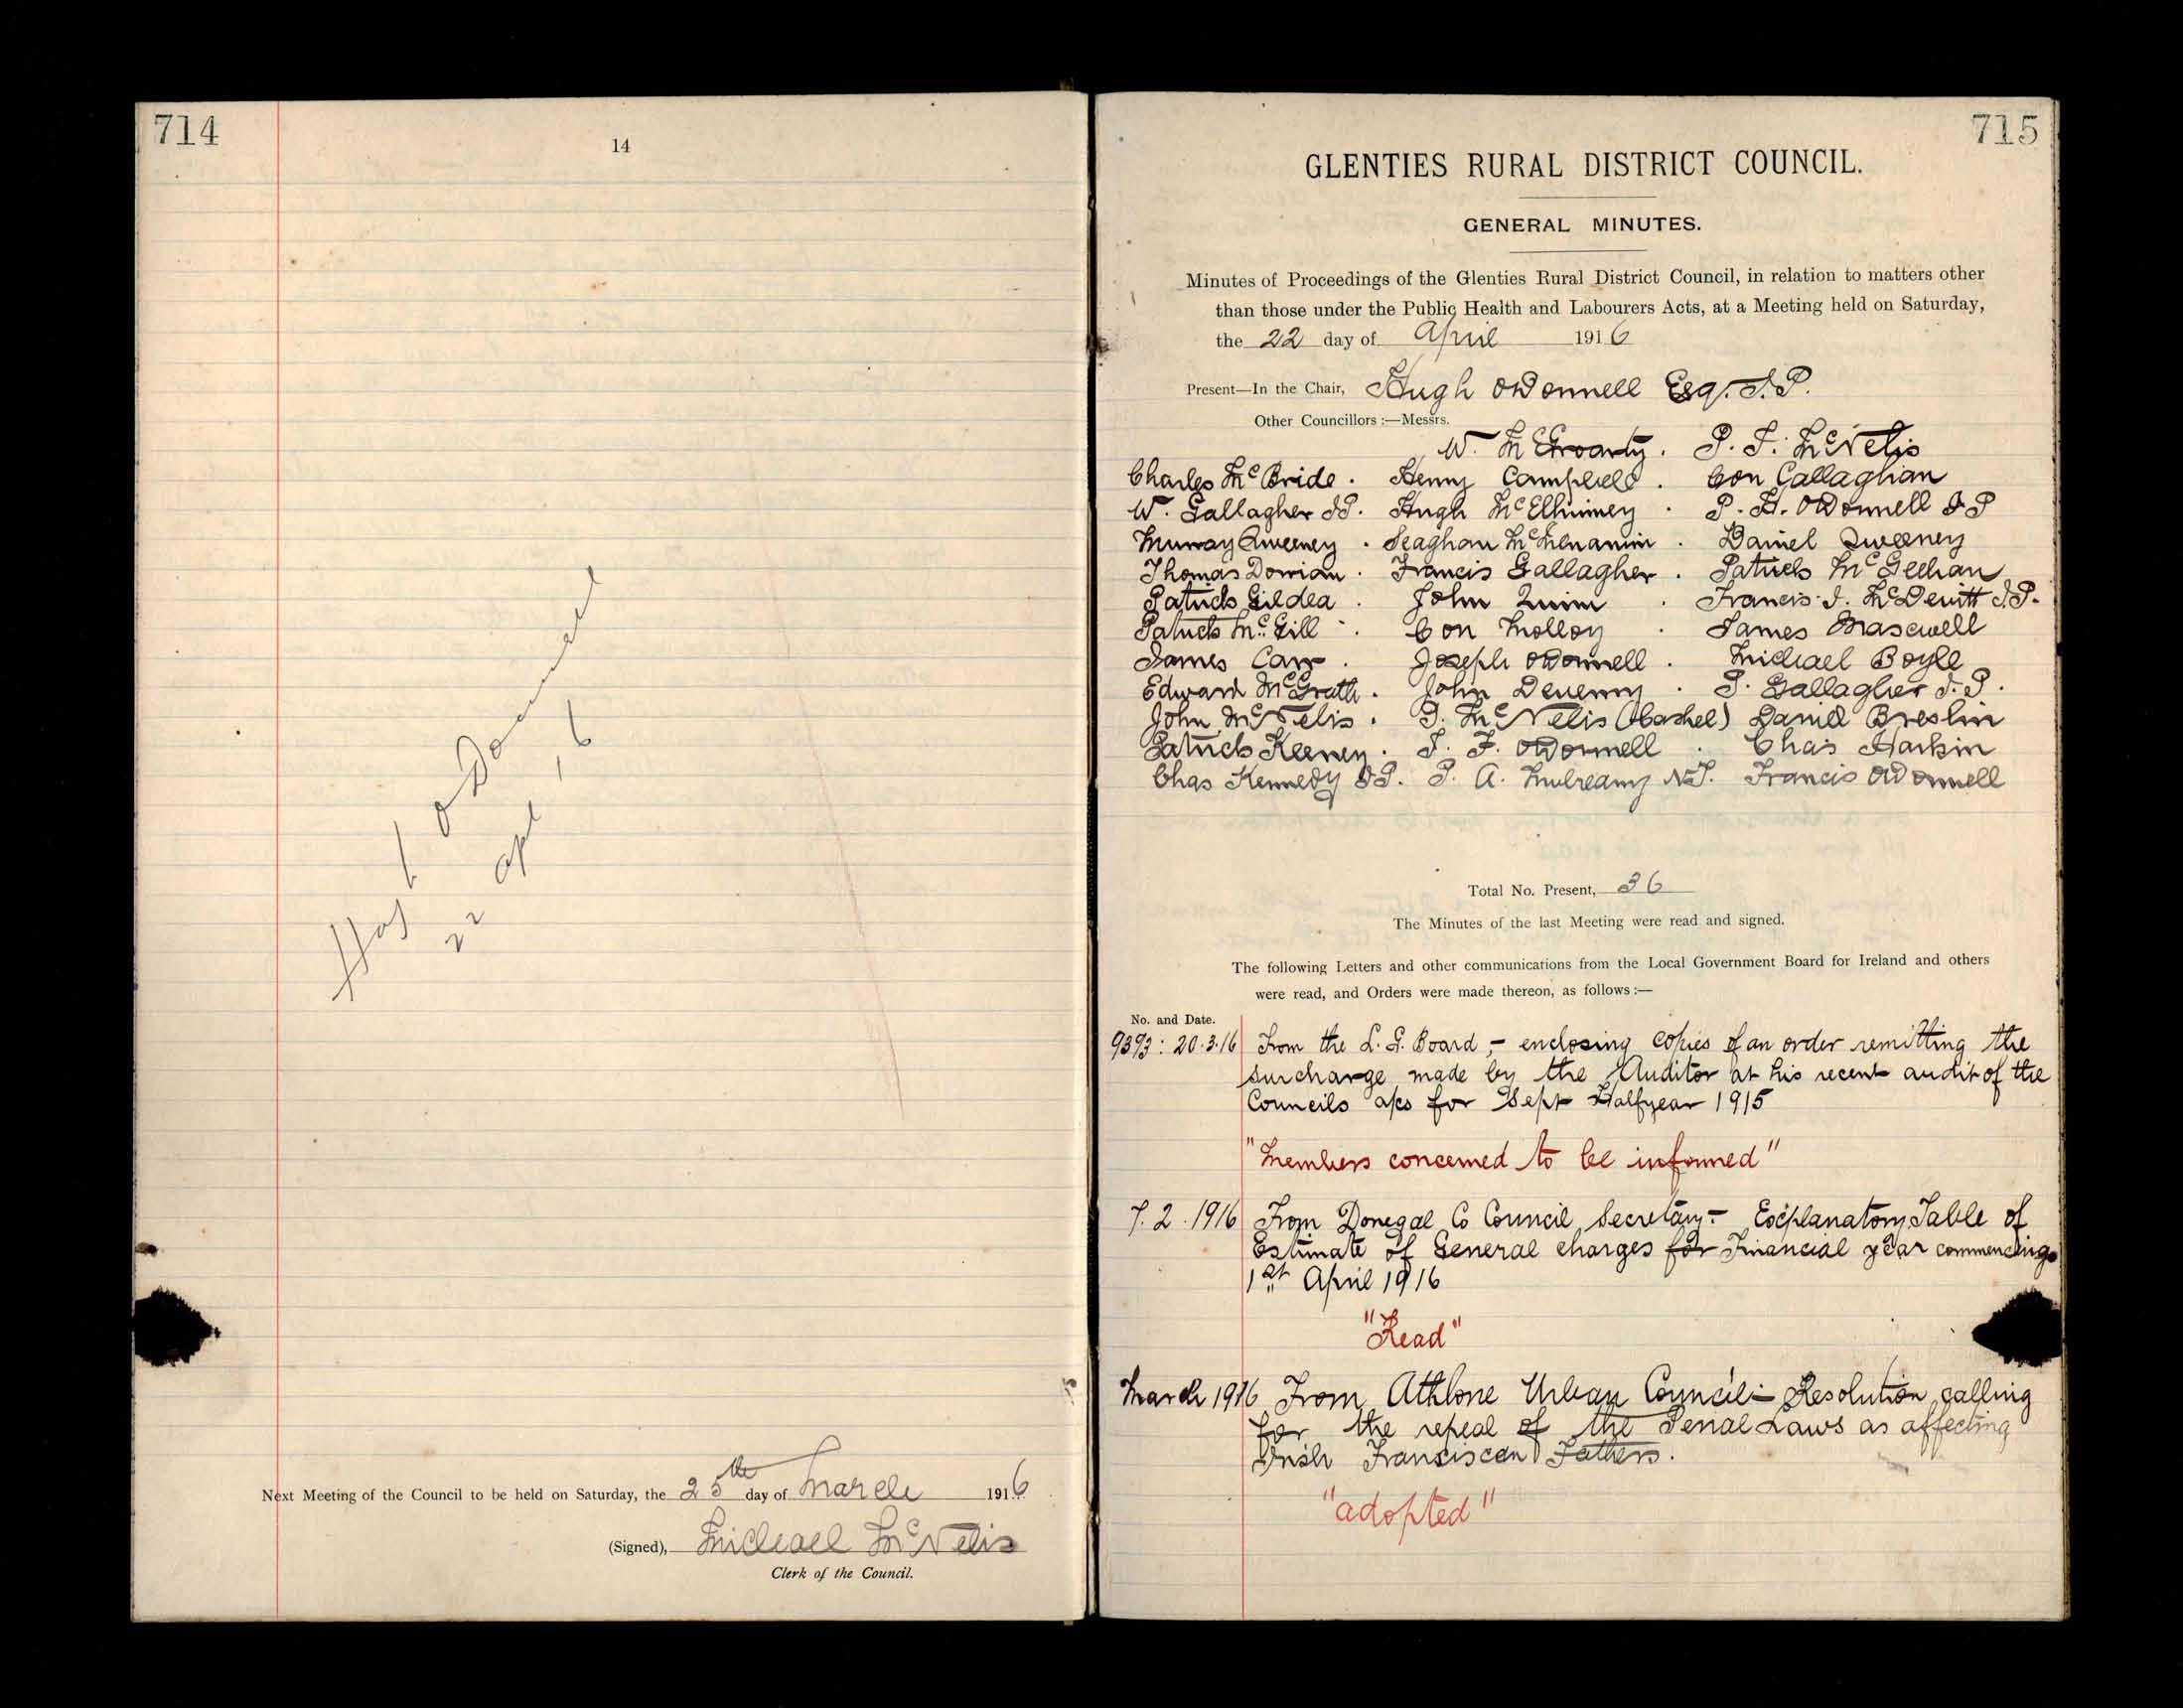 714
14
O'Donnell
22 Apl 16
Next Meeting of the Council to be held on Saturday, the 25th day of March 1916
(Signed), Michael McNelis
Clerk of the Council.
715
GLENTIES RURAL DISTRICT COUNCIL.
GENERAL MINUTES.
Minutes of Proceedings of the Glenties Rural District Council, in relation to matters other
than those under the Public Health and Labourers Acts, at a Meeting held on Saturday,
the 22 day of April 1916
Present—In the Chair, Hugh O'Donnell Esq. J.P.
Other Councillors:—Messrs.
W. McGroarty. P. J. McNelis
Charles McBride. Henry Campbell. Con Callaghan
W. Gallagher JP. Hugh McElhinney. P. H. O'Donnell JP
Murray Sweeney. Seaghan McMenamin. Daniel Sweeney
Thomas Dorrian. Francis Gallagher. Patrick McGeehan
Patrick Gildea. John Quinn. Francis J. McDevitt J.P.
Patrick McGill. Con Molloy. James Maxwell
James Carr. Joseph O'Donnell. Michael Boyle
Edward McGrath. John Devenny. P. Gallagher J.P.
John McNelis. P. McNelis (Cashel) Daniel Breslin
Patrick Keeney. J. F. O'Donnell. Chas Harkin
Chas Kennedy JP. P. A. Mulreany N.T. Francis O'Donnell
Total No. Present, 36
The Minutes of the last Meeting were read and signed.
The following Letters and other communications from the Local Government Board for Ireland and others
were read, and Orders were made thereon, as follows:—
No. and Date.
9393: 20.3.16 From the L. G. Board,- enclosing copies of an order remitting the
surcharge made by the Auditor at his recent audit of the
Councils a/cs for Sept Halfyear 1915
"Members concerned to be informed"
7.2.1916 From Donegal Co Council Secretary- Explanatory Table of
Estimate of General charges for Financial year commencing
1st April 1916
"Read"
March 1916 From Athlone Urban Council- Resolution calling
for the repeal of the Penal Laws as affecting
Irish Franciscan Fathers.
"adopted"